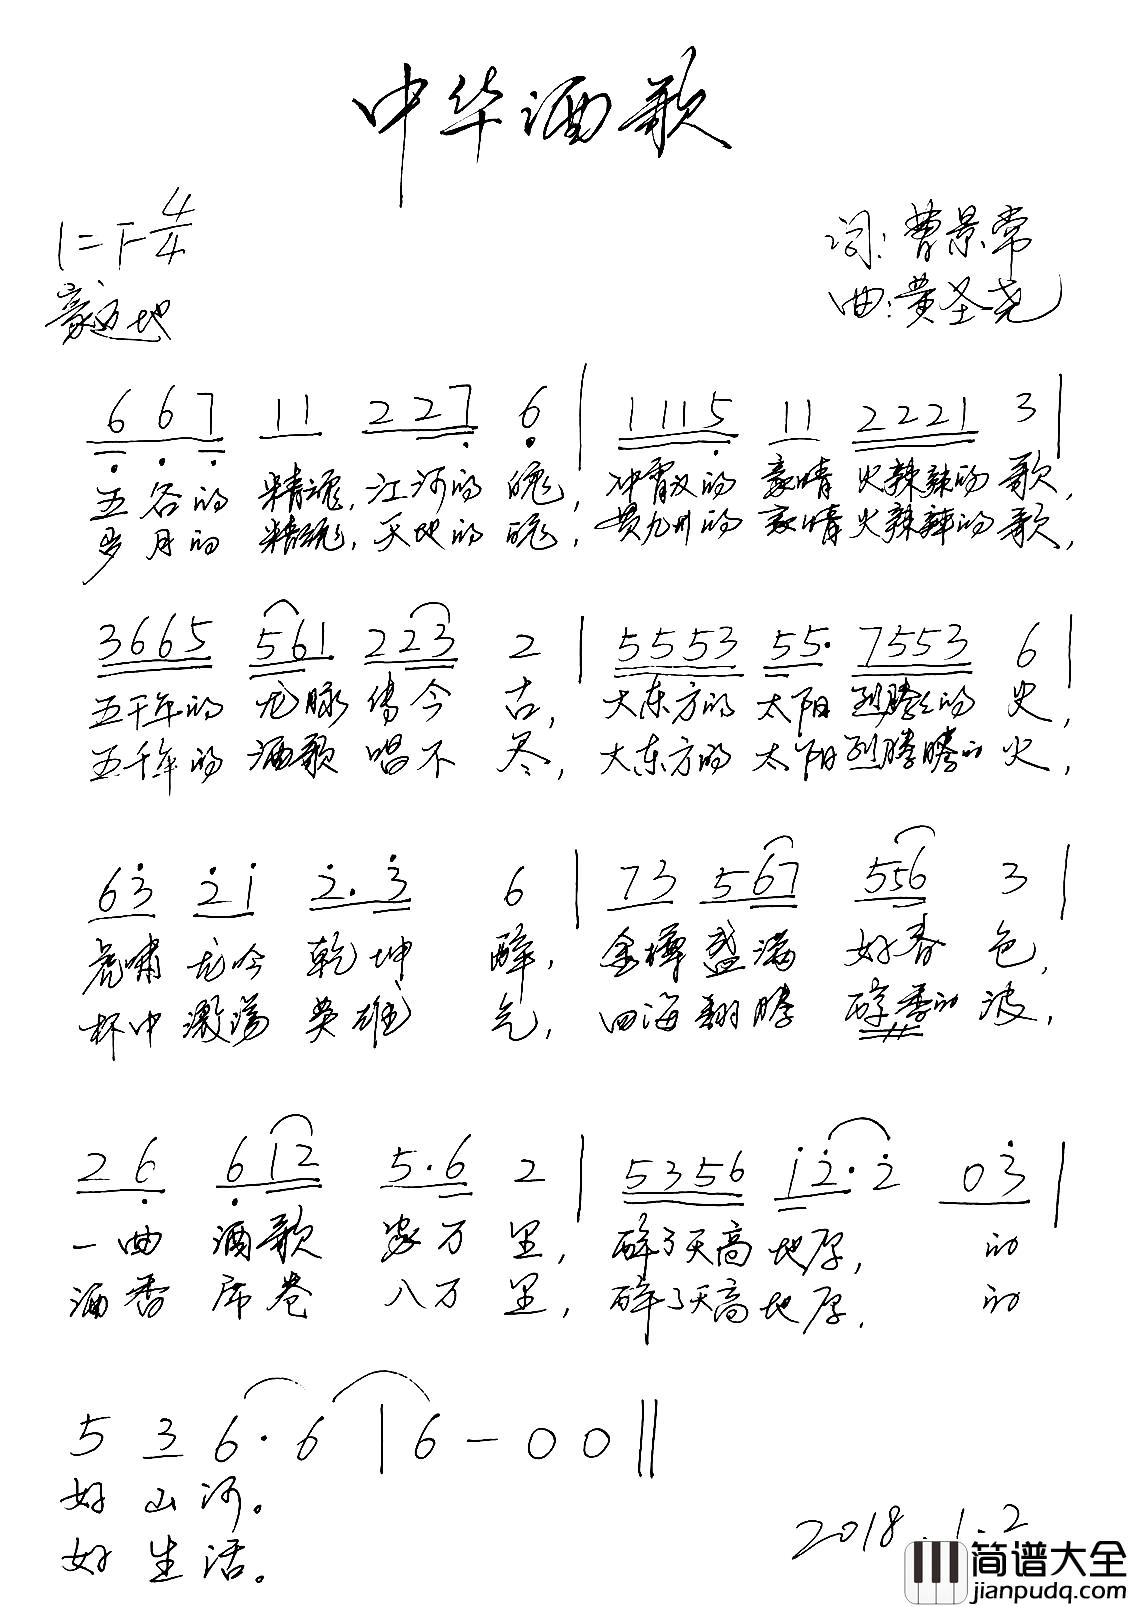 中华酒歌
1=F 4/4
豪迈地
词:曹景常
曲:黄圣尧
6 6 7 11 227 6 | 1115 11 2221 3 |
五谷的 精魂,江河的 魄,冲霄汉的 豪情 火辣辣的 歌,
岁月的 精魂,天地的 魄,贯九州的 豪情 火辣辣的 歌,
3665 561 223 2 | 5553 55· 7553 6 |
五千年的 龙脉 传今 古,大东方的 太阳 烈腾腾的 火,
五千年的 酒歌 唱不 尽,大东方的 太阳 烈腾腾的 火,
63 21 2·3 6 | 73 567 556 3 |
虎啸 龙吟 乾坤 醉,金樽 盛满 好春 色,
杯中 激荡 英雄 气,四海 翻腾 醇香的 波,
26 612 5·6 2 | 5356 12·2 03 |
一曲 酒歌 家万 里,醉了天高 地厚, 的
酒香 席卷 八万 里,醉了天高 地厚, 的
5 3 6·6 | 6 - 0 0 ‖
好山河。
好生活。
2018.1.2
简谱大全
jianpudq.com